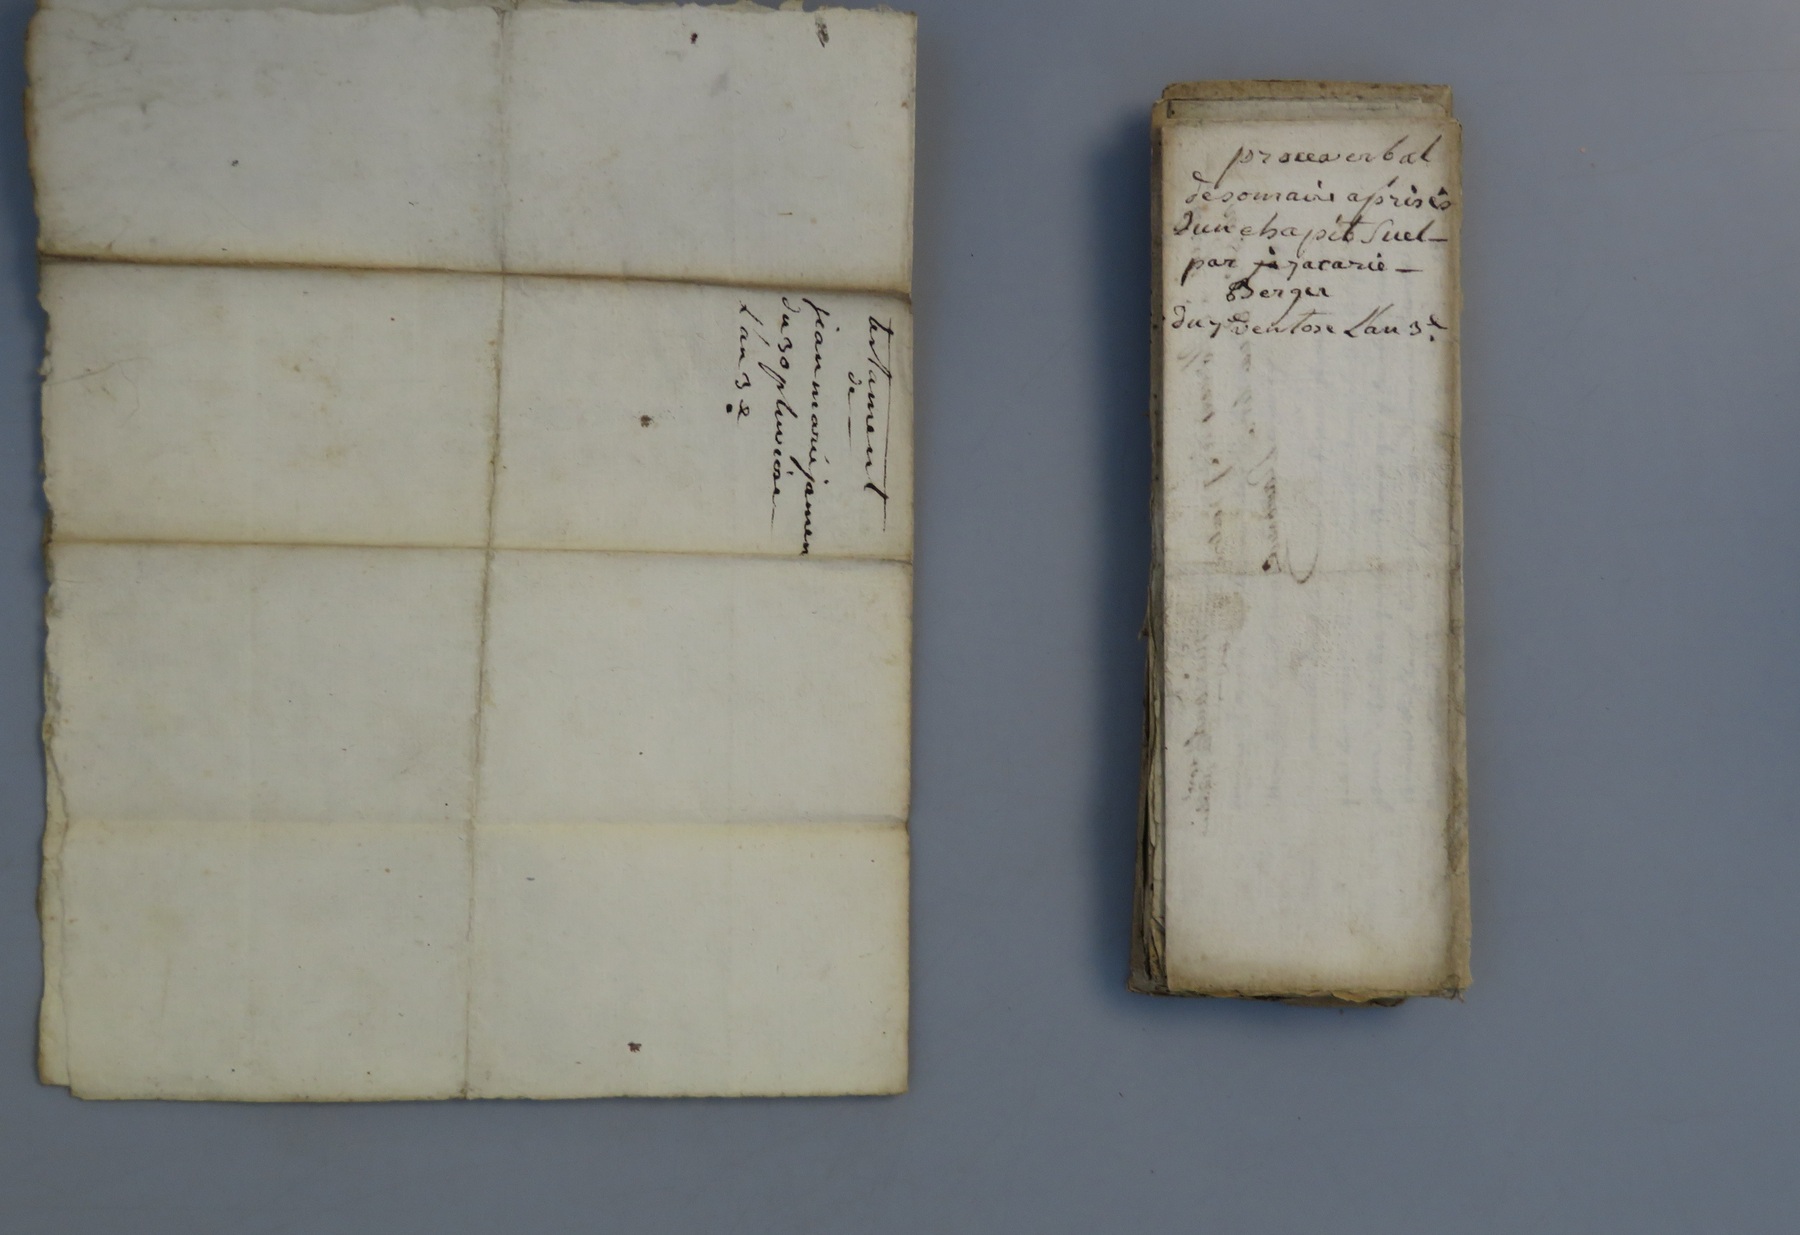 testament
de
jean marie jamen
du 30 pluviose
L'an 3e
proceverbal
desomaire aprisis
dun chapit Suel
par jè zacarie
Berger
du 7e ventose L'an 3e